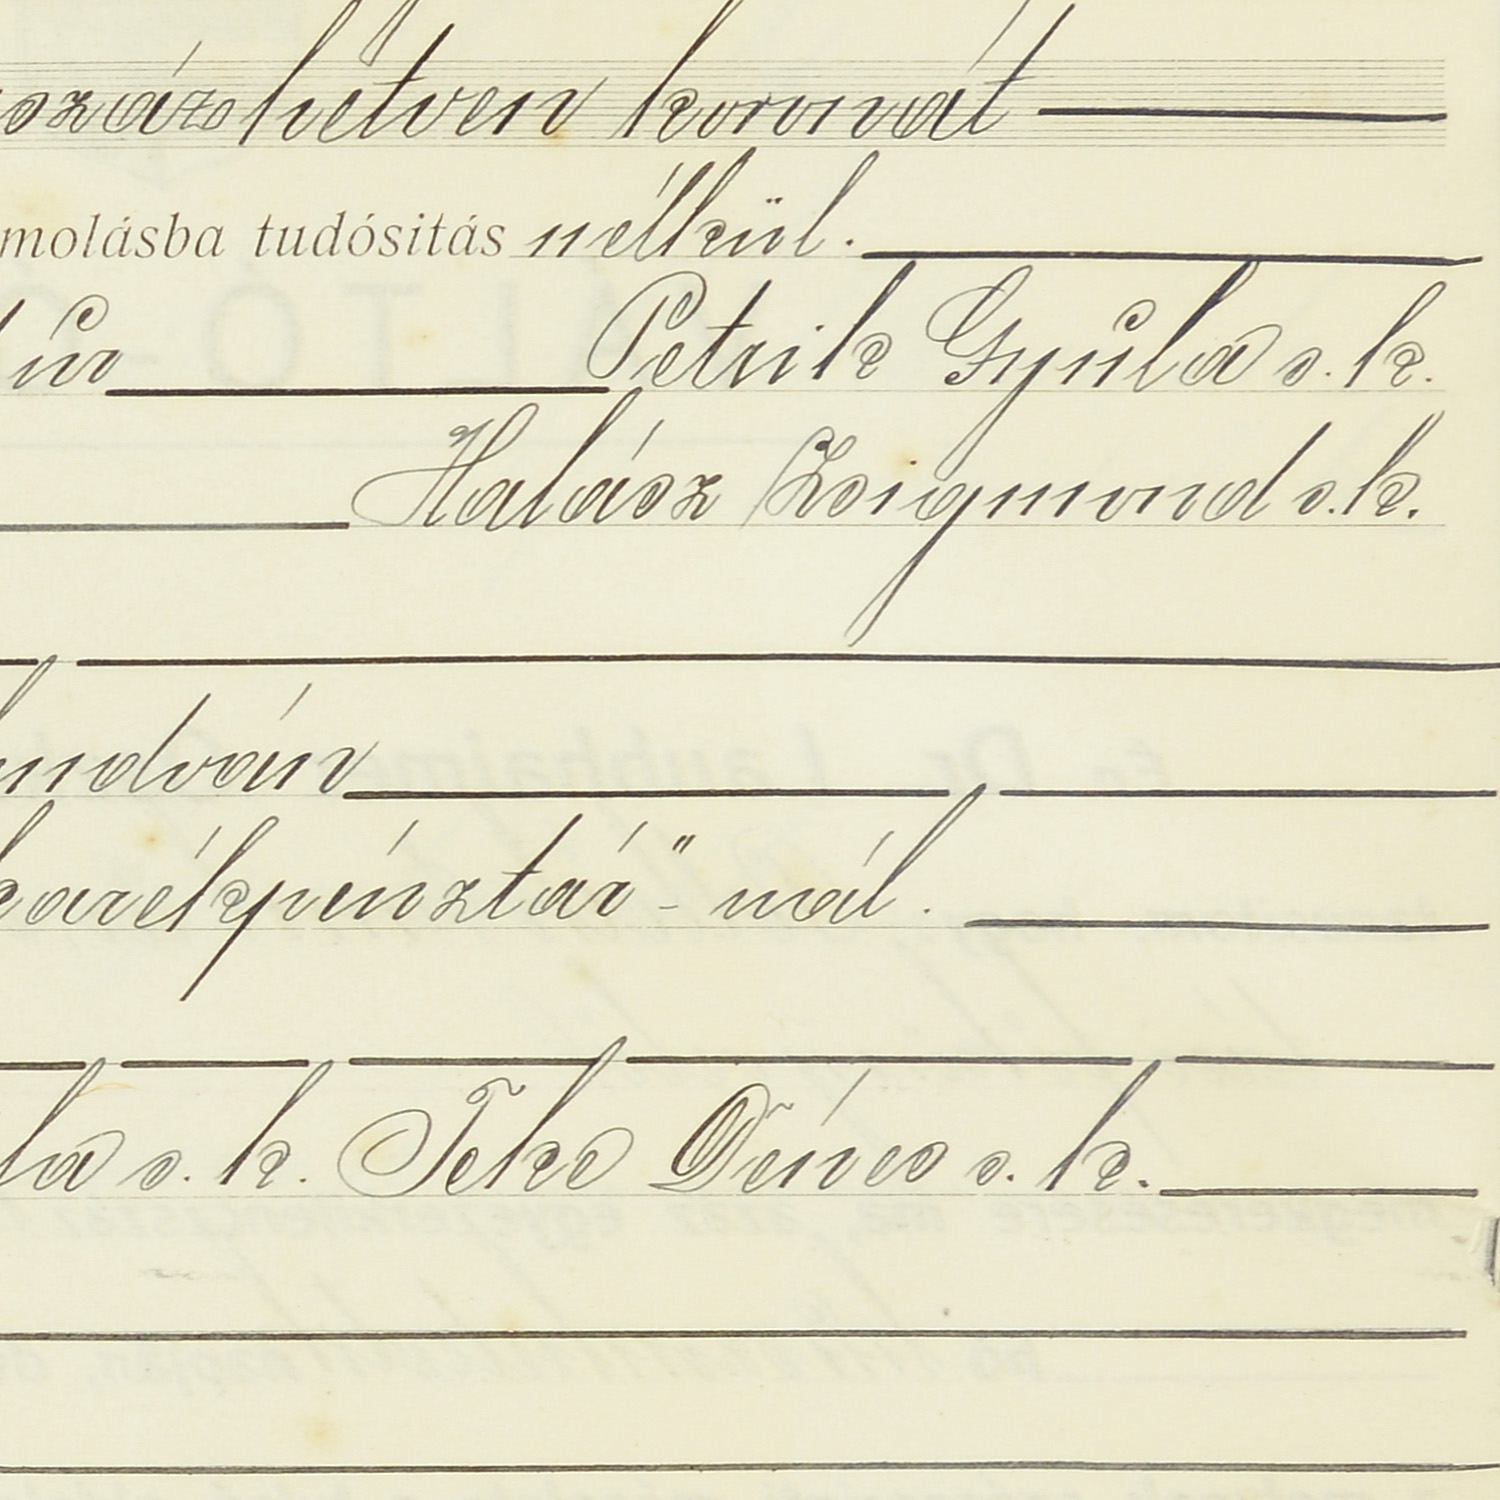 százhetven koronát
molásba tudósitás nélkül.
úr Petrik Gyula s. k.
Halász Zsigmond s. k.
karékpénztár"-nál.
la s. k. Teke Dénes s. k.